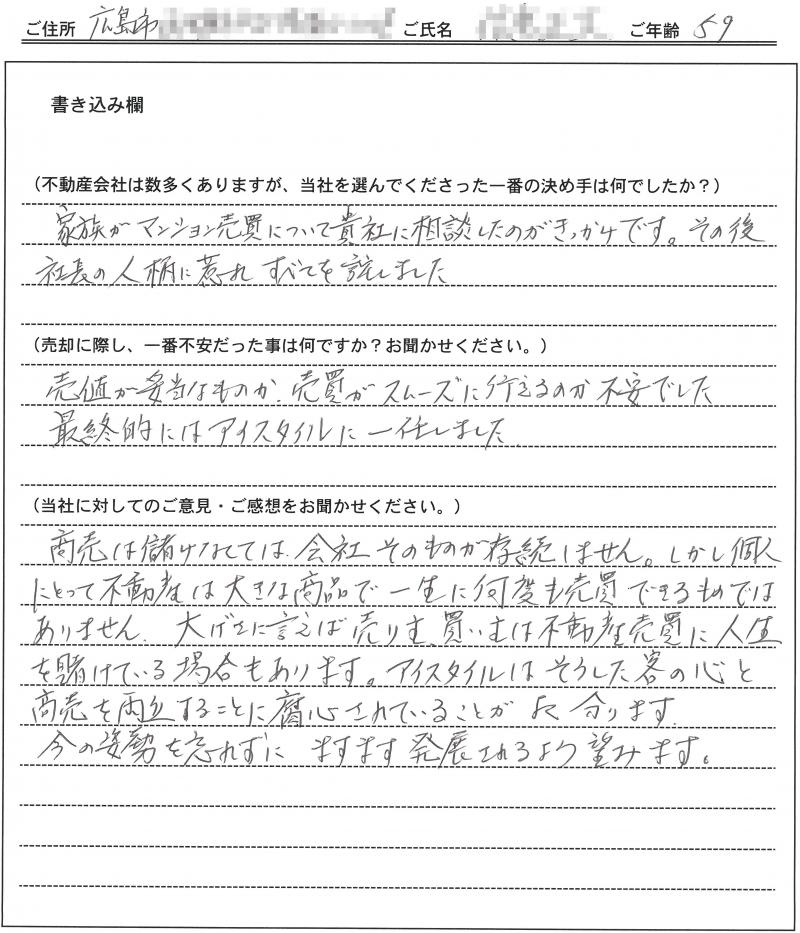 ご住所 広島市 ご氏名 ご年齢 59
書き込み欄
(不動産会社は数多くありますが、当社を選んでくださった一番の決め手は何でしたか?)
家族がマンション売買について貴社に相談したのがきっかけです。その後
社長の人柄に惹れすべてを託しました
(売却に際し、一番不安だった事は何ですか?お聞かせください。)
売値が妥当なものか、売買がスムーズに行えるのか不安でした
最終的にはアイスタイルに一任しました
(当社に対してのご意見・ご感想をお聞かせください。)
商売は儲けなくては、会社そのものが存続しません。しかし個人
にとって不動産は大きな商品で一生に何度も売買できるものでは
ありません。大げさに言えば売り主、買い主は不動産売買に人生
を賭けている場合もあります。アイスタイルはそうした客の心と
商売を両立することに腐心されていることがよく分ります。
今の姿勢を忘れずに ますます発展されるよう望みます。